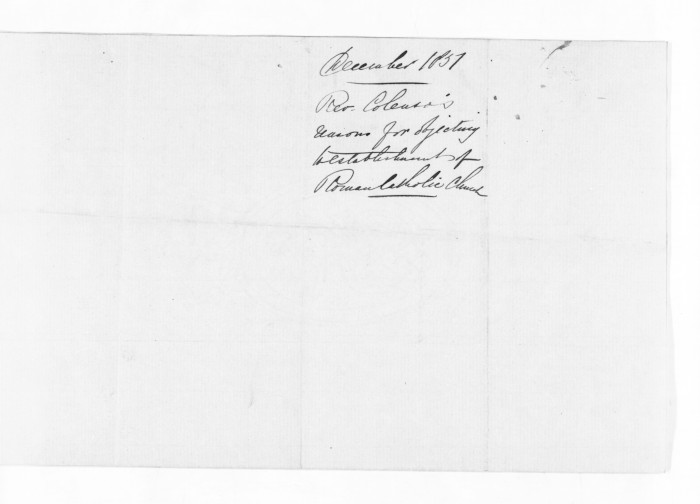 December 1851
Rev. Colenso's
reasons for objecting
to establishment of
Roman Catholic Church